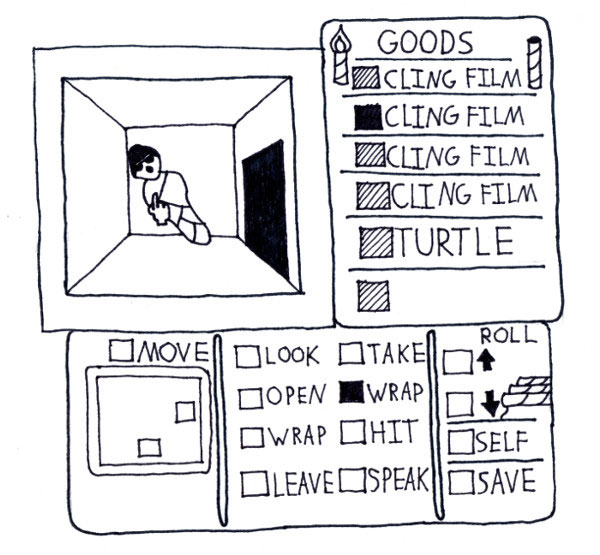 GOODS
CLING FILM
CLING FILM
CLING FILM
CLING FILM
TURTLE
MOVE
LOOK TAKE
OPEN WRAP
WRAP HIT
LEAVE SPEAK
ROLL
SELF
SAVE